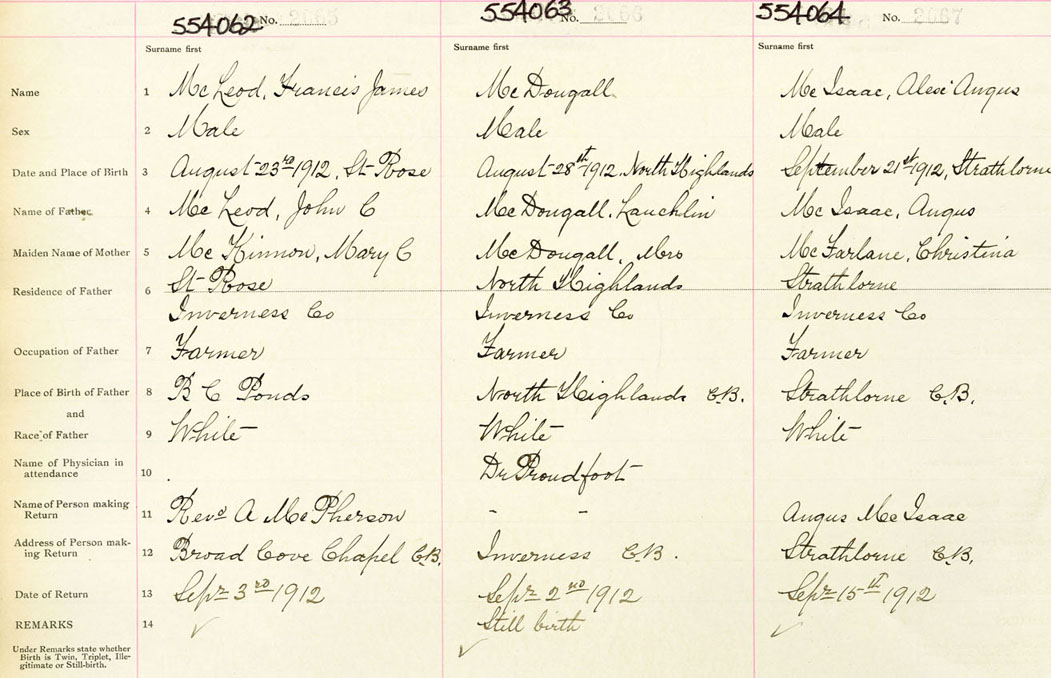 554062 No. 2065 554063 No. 2066 554064 No. 2067
Surname first Surname first Surname first
Name 1 McLeod, Francis James McDougall McIsaac, Alexi Angus
Sex 2 Male Male Male
Date and Place of Birth 3 August 23rd 1912, St Rose August 28th 1912. North Highlands September 21st 1912, Strathlorne
Name of Father 4 McLeod, John C McDougall, Lauchlin McIsaac, Angus
Maiden Name of Mother 5 McKinnon, Mary C McDougall, Mrs McFarlane, Christina
Residence of Father 6 St Rose North Highlands Strathlorne
Inverness Co Inverness Co Inverness Co
Occupation of Father 7 Farmer Farmer Farmer
Place of Birth of Father 8 B C Ponds North Highlands C.B. Strathlorne C.B.
and
Race of Father 9 White White White
Name of Physician in
attendance 10 Dr Proudfoot
Name of Person making
Return 11 Revd A McPherson - - Angus McIsaac
Address of Person mak-
ing Return 12 Broad Cove Chapel C.B. Inverness C.B. Strathlorne C.B.
Date of Return 13 Sept 3rd 1912 Sept 2nd 1912 Sept 15th 1912
REMARKS 14 Still birth
Under Remarks state whether
Birth is Twin, Triplet, Ille-
gitimate or Still-birth.